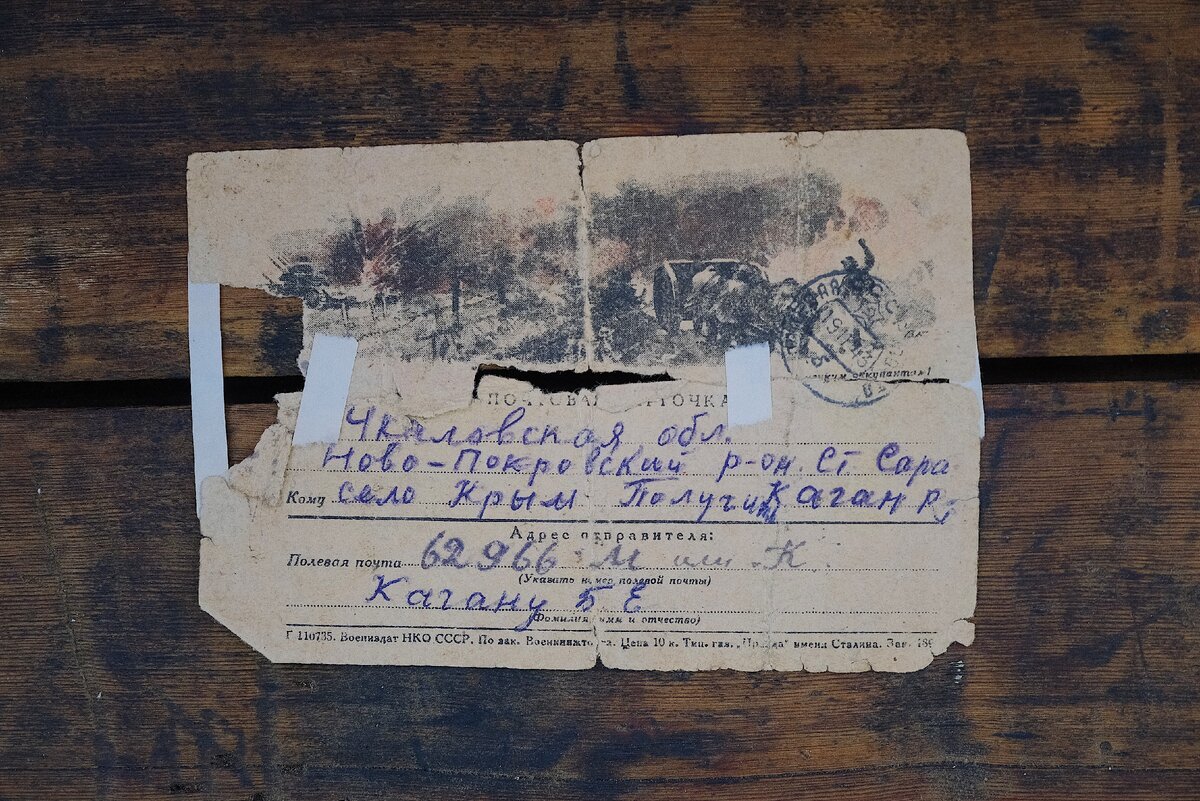 оккупантам!
ПОЧТОВАЯ КАРТОЧКА
Чкаловская обл.
Ново-Покровский р-он. Ст Сара
Кому село Крым Получит Каган Р
Адрес отправителя:
Полевая почта 62966 М или К
(Указать номер полевой почты)
Кагану Б Е
(Фамилия, имя и отчество)
Г 110735. Воениздат НКО СССР. По зак. Цена 10 к. Тип. газ. „Правда“ имени Сталина. Зак.